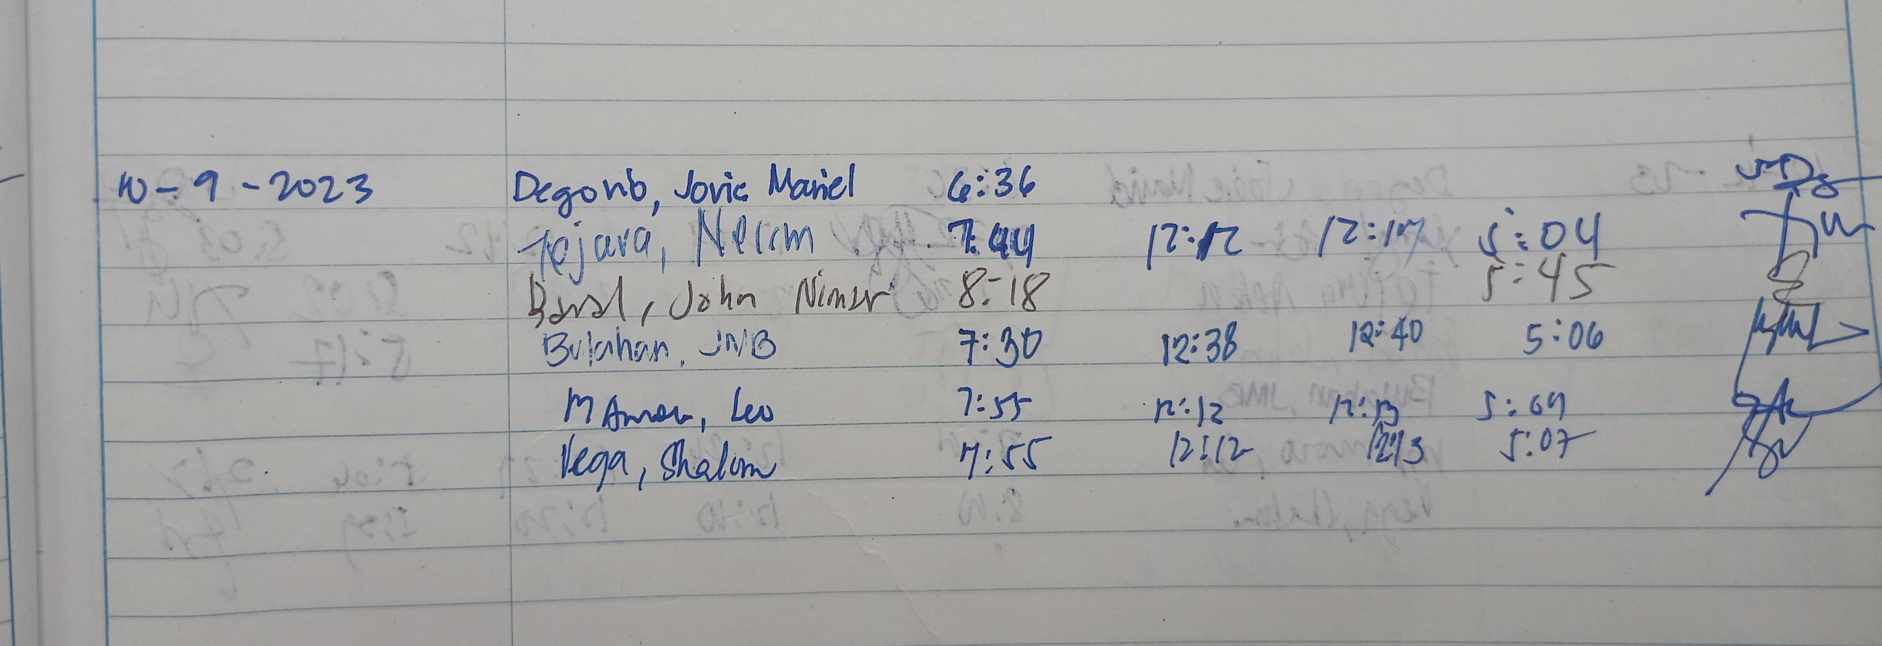 10-9-2023 Degorib, Jovic Mariel 6:36
Tejara, Nerim 7:44 12:12 12:17 5:04
John 8:18 5:45
Bulahan, JMB 7:30 12:38 12:40 5:06
Leo 7:55 12:12 12:13 5:09
Vega, Shalom 7:55 12:12 12:13 5:07